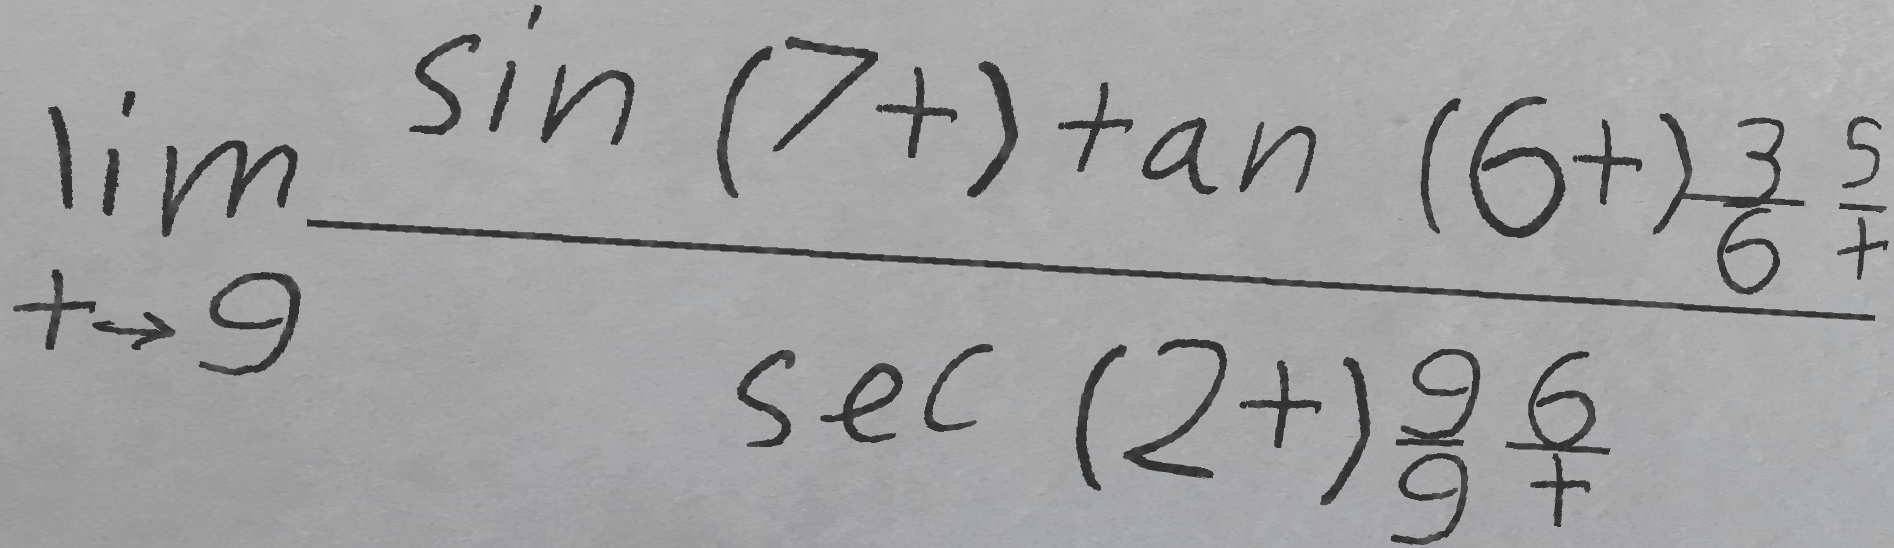 \lim_{t \to 9} \frac{\sin (7t) \tan (6t) \frac{3}{6} \frac{5}{t}}{\sec (2t) \frac{9}{9} \frac{6}{t}}